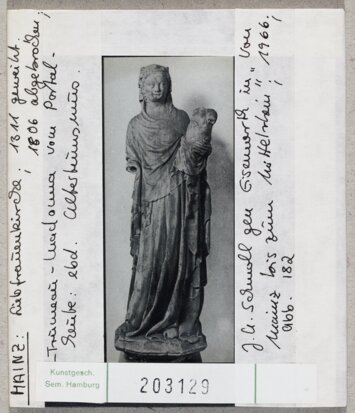 MAINZ: Liebfrauenkirche: 1311 geweiht.
; 1806 abgebrochen;
Trumeau-Madonna vom Portal-
heute: ebd. Altertumsmus.
J.A. Schmoll gen Eisenwerth in „Von
Mainz bis zum Mittelrhein“, 1966,
Abb. 182
Kunstgesch.
Sem. Hamburg
203129